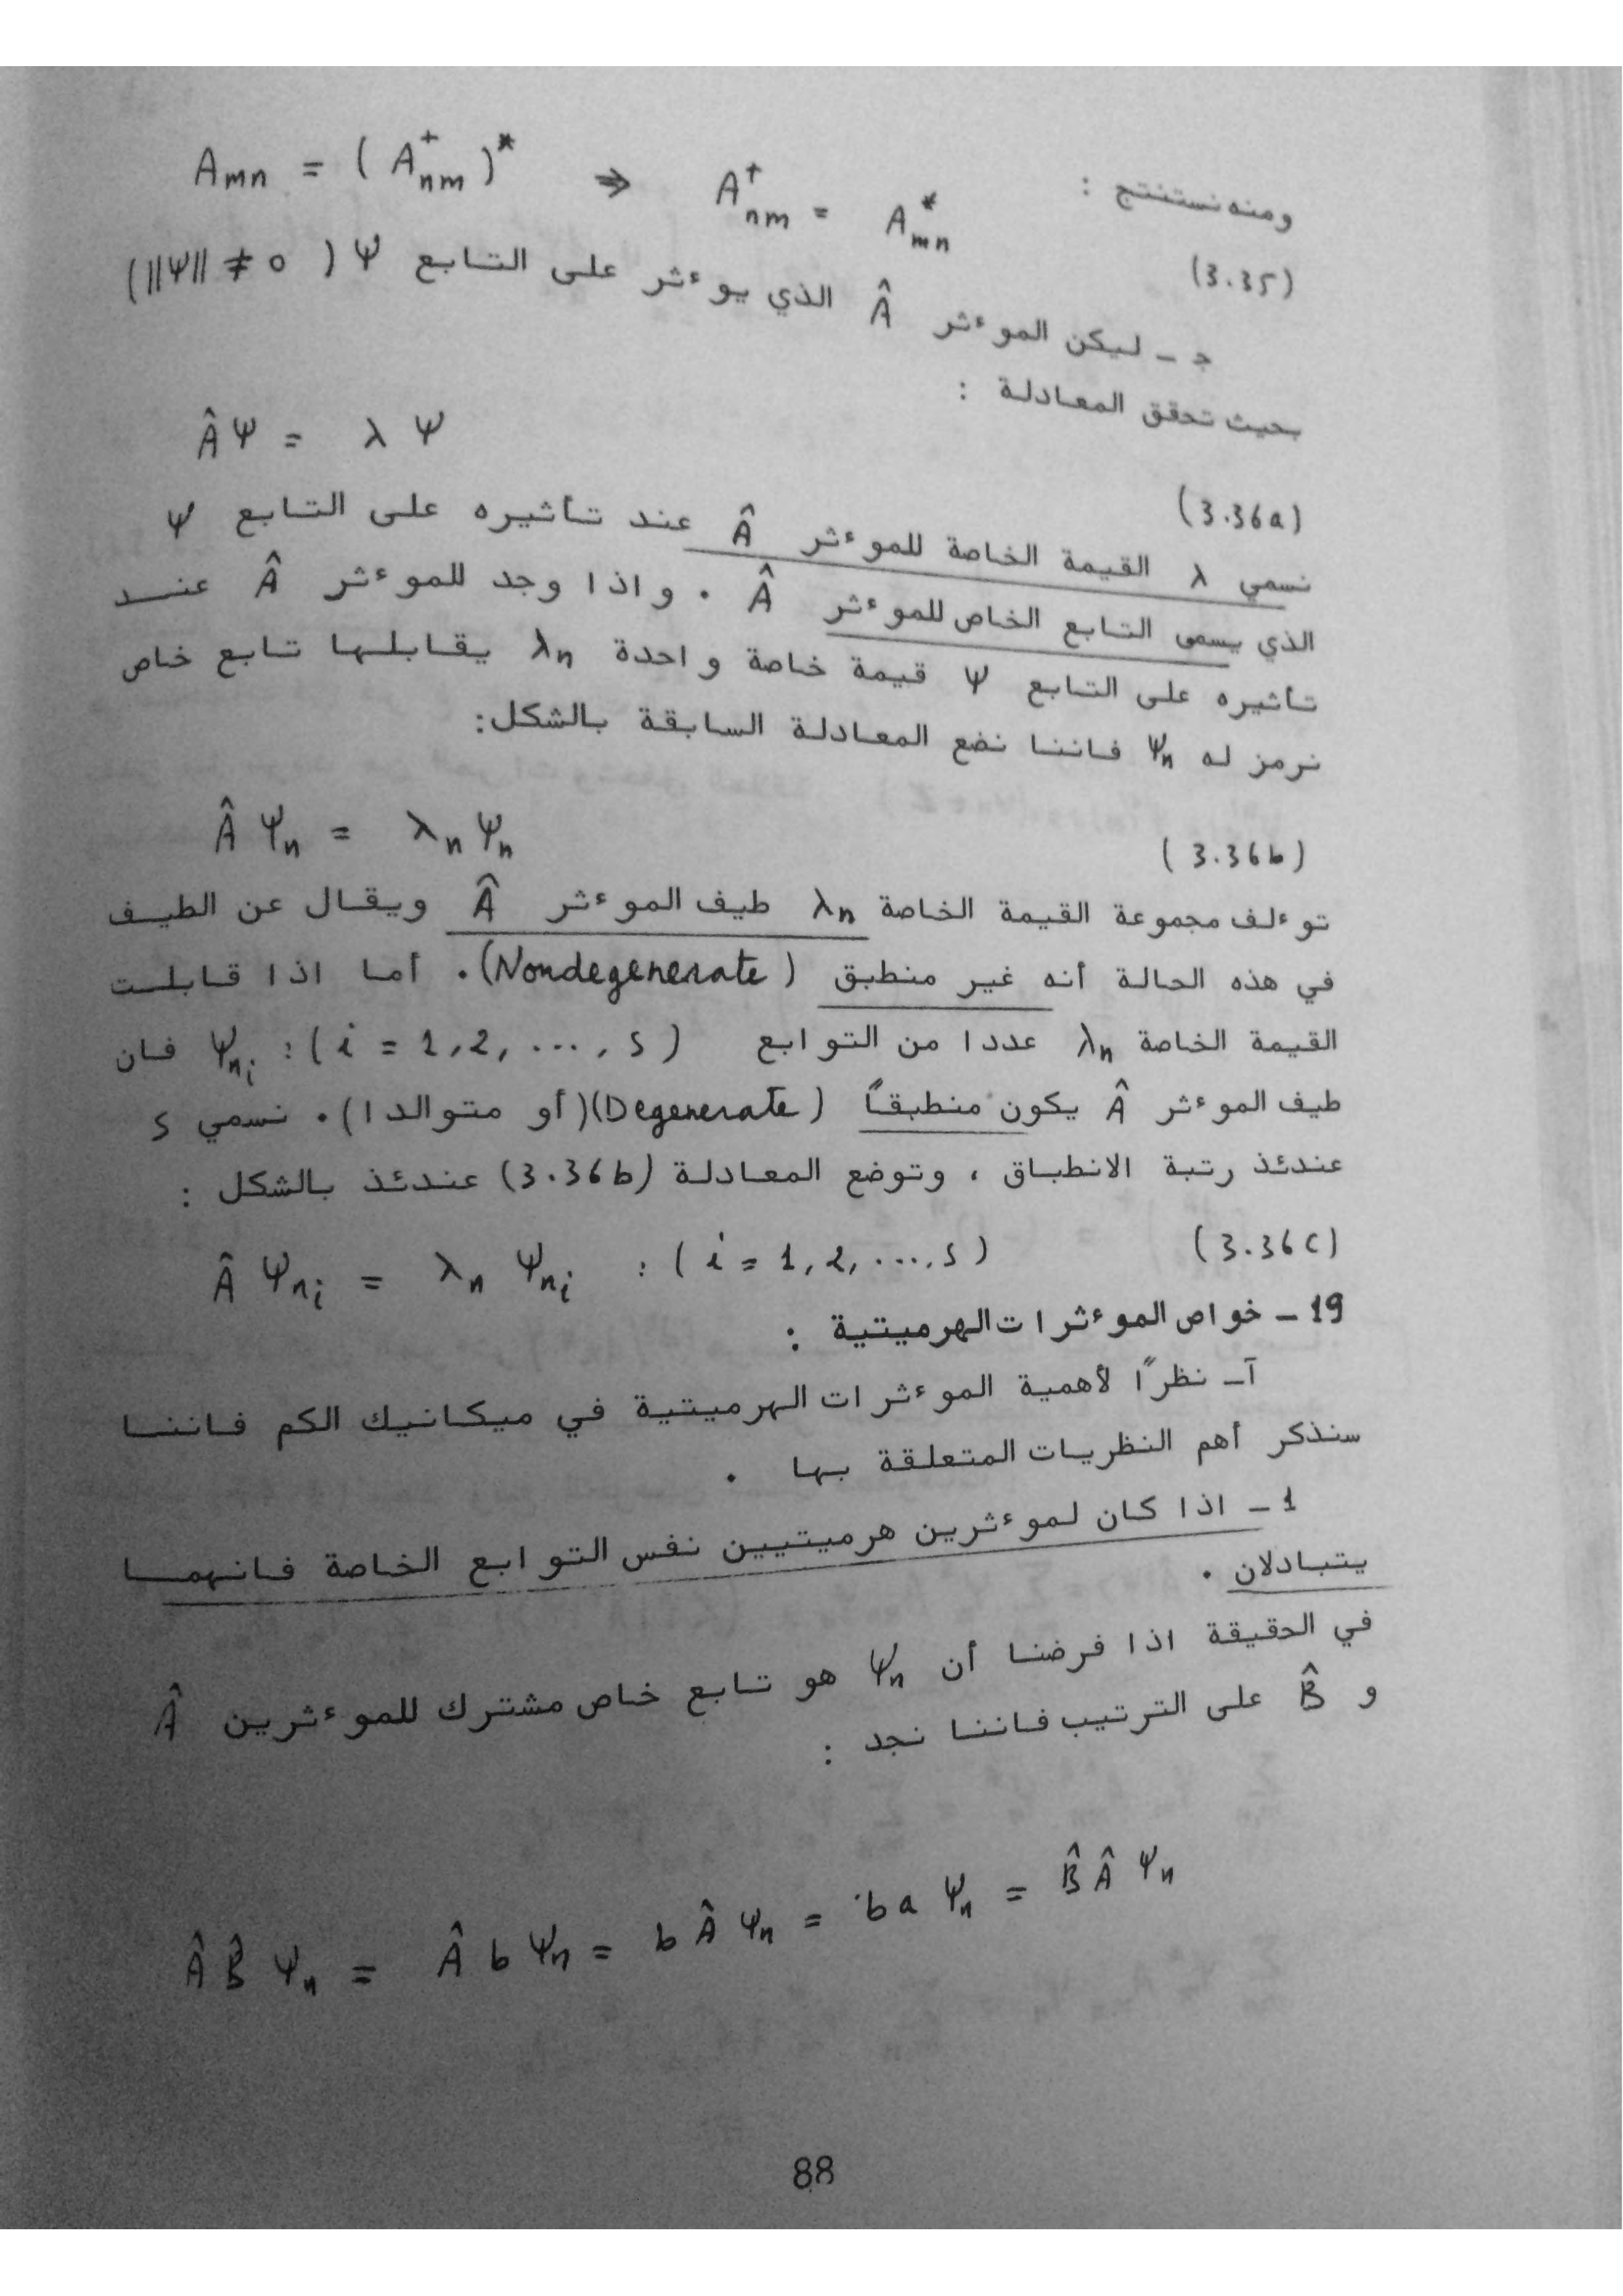 ومنه نستنتج : Amn = ( A⁺nm )* ⇒ A⁺nm = A*mn
(3.35)
ج ـ ليكن الموءثر Â الذي يوءثر على التابع Ψ ( ‖Ψ‖ ≠ 0)
بحيث تحقق المعادلة :
ÂΨ = λ Ψ
(3.36a)
نسمي λ القيمة الخاصة للموءثر Â عند تأثيره على التابع Ψ
الذي يسمى التابع الخاص للموءثر Â . واذا وجد للموءثر Â عنـد
تأثيره على التابع Ψ قيمة خاصة واحدة λn يقابلها تابع خاص
نرمز له Ψn فاننا نضع المعادلة السابقة بالشكل:
Â Ψn = λn Ψn (3.36b)
توءلف مجموعة القيمة الخاصة λn طيف الموءثر Â ويقال عن الطيف
في هذه الحالة أنه غير منطبق (Nondegenerate). أما اذا قابلت
القيمة الخاصة λn عددا من التوابع Ψni : ( i = 1,2, ..., s ) فان
طيف الموءثر Â يكون منطبقاً (Degenerate)(أو متوالدا). نسمي s
عندئذ رتبة الانطباق ، وتوضع المعادلة (3.36b) عندئذ بالشكل :
Â Ψni = λn Ψni : ( i = 1,2,...,s ) (3.36c)
19 ـ خواص الموءثرات الهرميتية :
آ ـ نظراً لأهمية الموءثرات الهرميتية في ميكانيك الكم فاننا
سنذكر أهم النظريات المتعلقة بها .
1 ـ اذا كان لموءثرين هرميتيين نفس التوابع الخاصة فانهما
يتبادلان .
في الحقيقة اذا فرضنا أن Ψn هو تابع خاص مشترك للموءثرين Â
و B̂ على الترتيب فاننا نجد :
Â B̂ Ψn = Â b Ψn = b Â Ψn = b a Ψn = B̂ Â Ψn
88